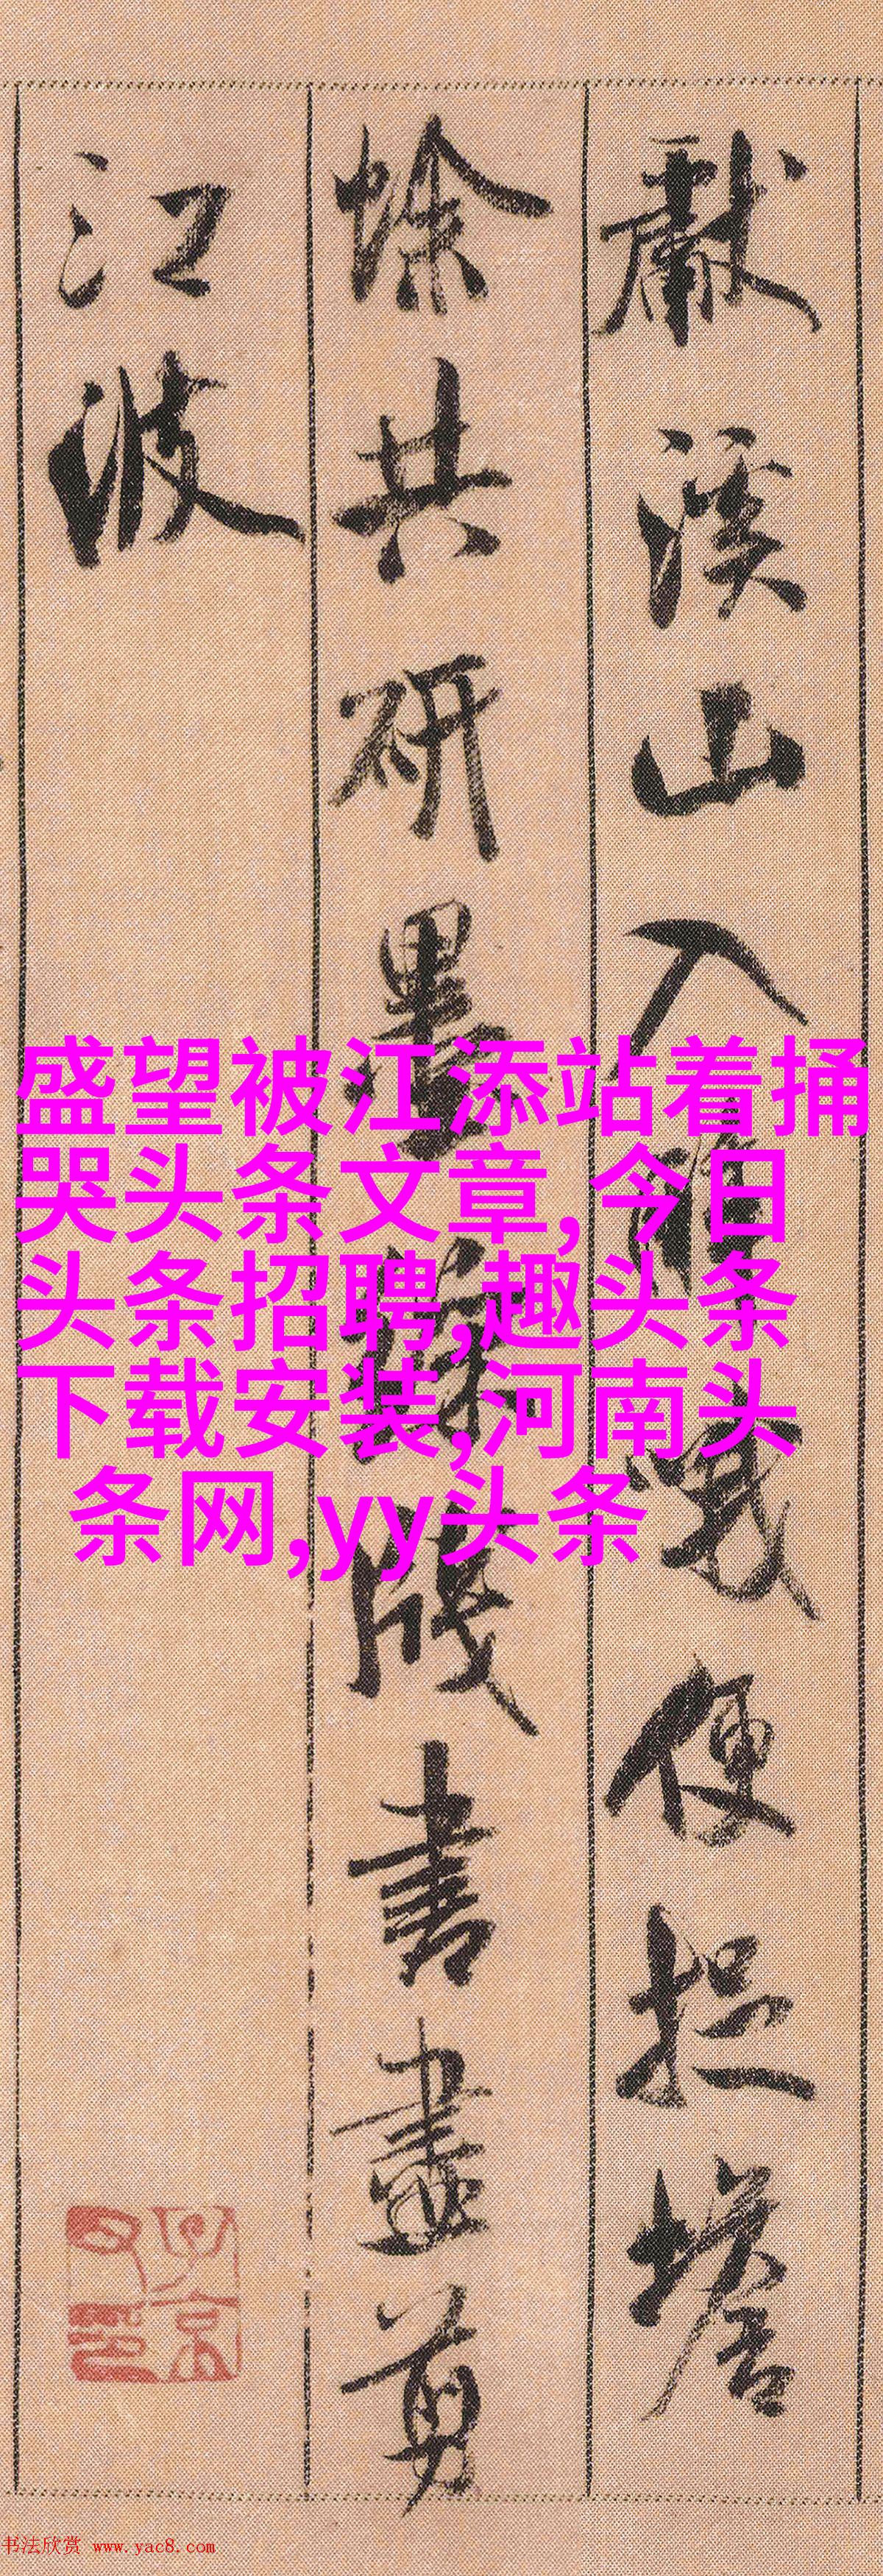 獻溪山入醉哦便捉蟾
蜍共研墨綵牋書盡剪
江波
盛望被江添站着捅
哭头条文章,今日
头条招聘,趣头条
下载安装,河南头
条网,yy头条
书法欣赏 www.yac8.com